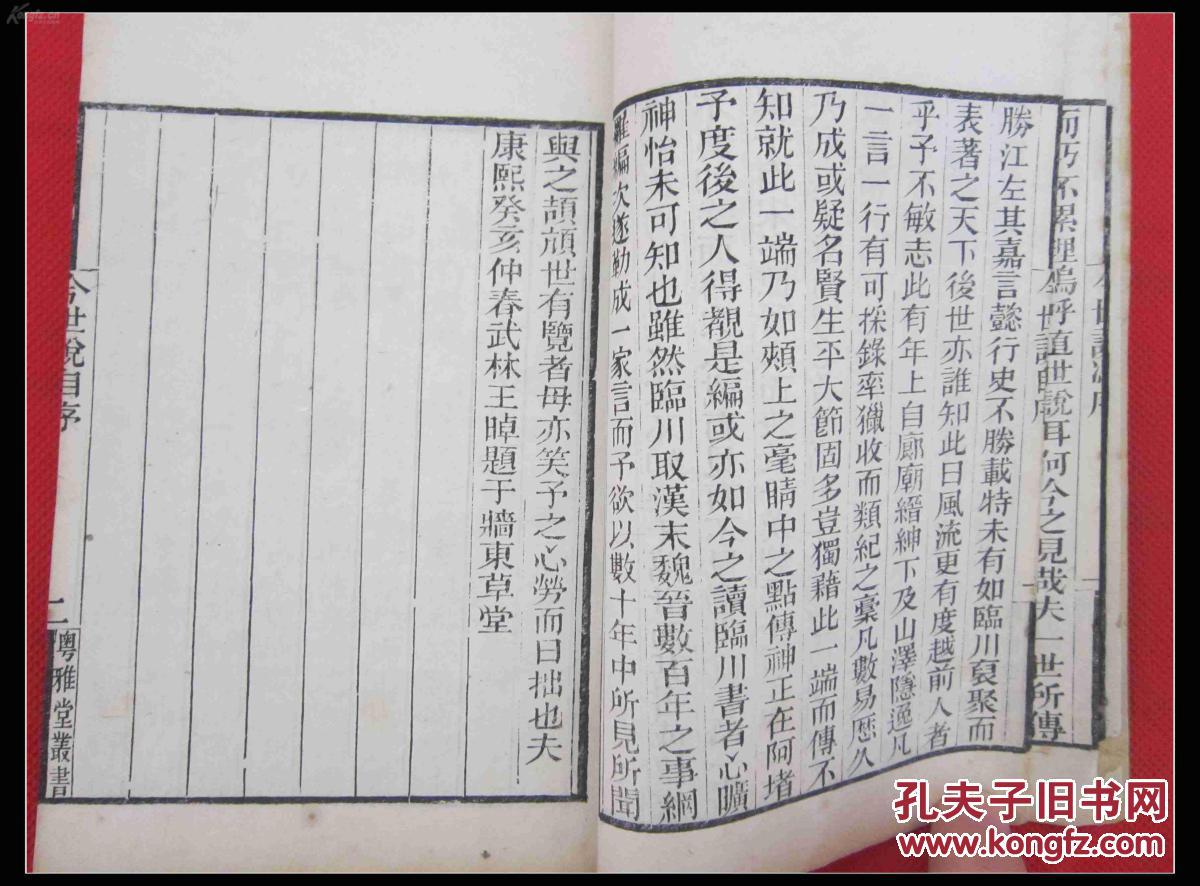 而巧不累理嗚呼直世說耳何今之見哉夫一世所傳
勝江左其嘉言懿行史不勝載特未有如臨川裒聚而
表著之天下後世亦誰知此日風流更有度越前人者
乎予不敏志此有年上自廊廟縉紳下及山澤隱逸凡
一言一行有可採錄率獵收而類紀之稾凡數易歷久
乃成或疑名賢生平大節固多豈獨藉此一端而傳不
知就此一端乃如頰上之毫睛中之點傳神正在阿堵
予度後之人得覩是編或亦如今之讀臨川書者心曠
神怡未可知也雖然臨川取漢末魏晉數百年之事網
羅編次遂勒成一家言而予欲以數十年中所見所聞
與之頡頏世有覽者毋亦笑予之心勞而日拙也夫
康熙癸亥仲春武林王晫題于牆東草堂
今世說自序
二
粵雅堂叢書
孔夫子旧书网
www.kongfz.com
Kongfz.cn